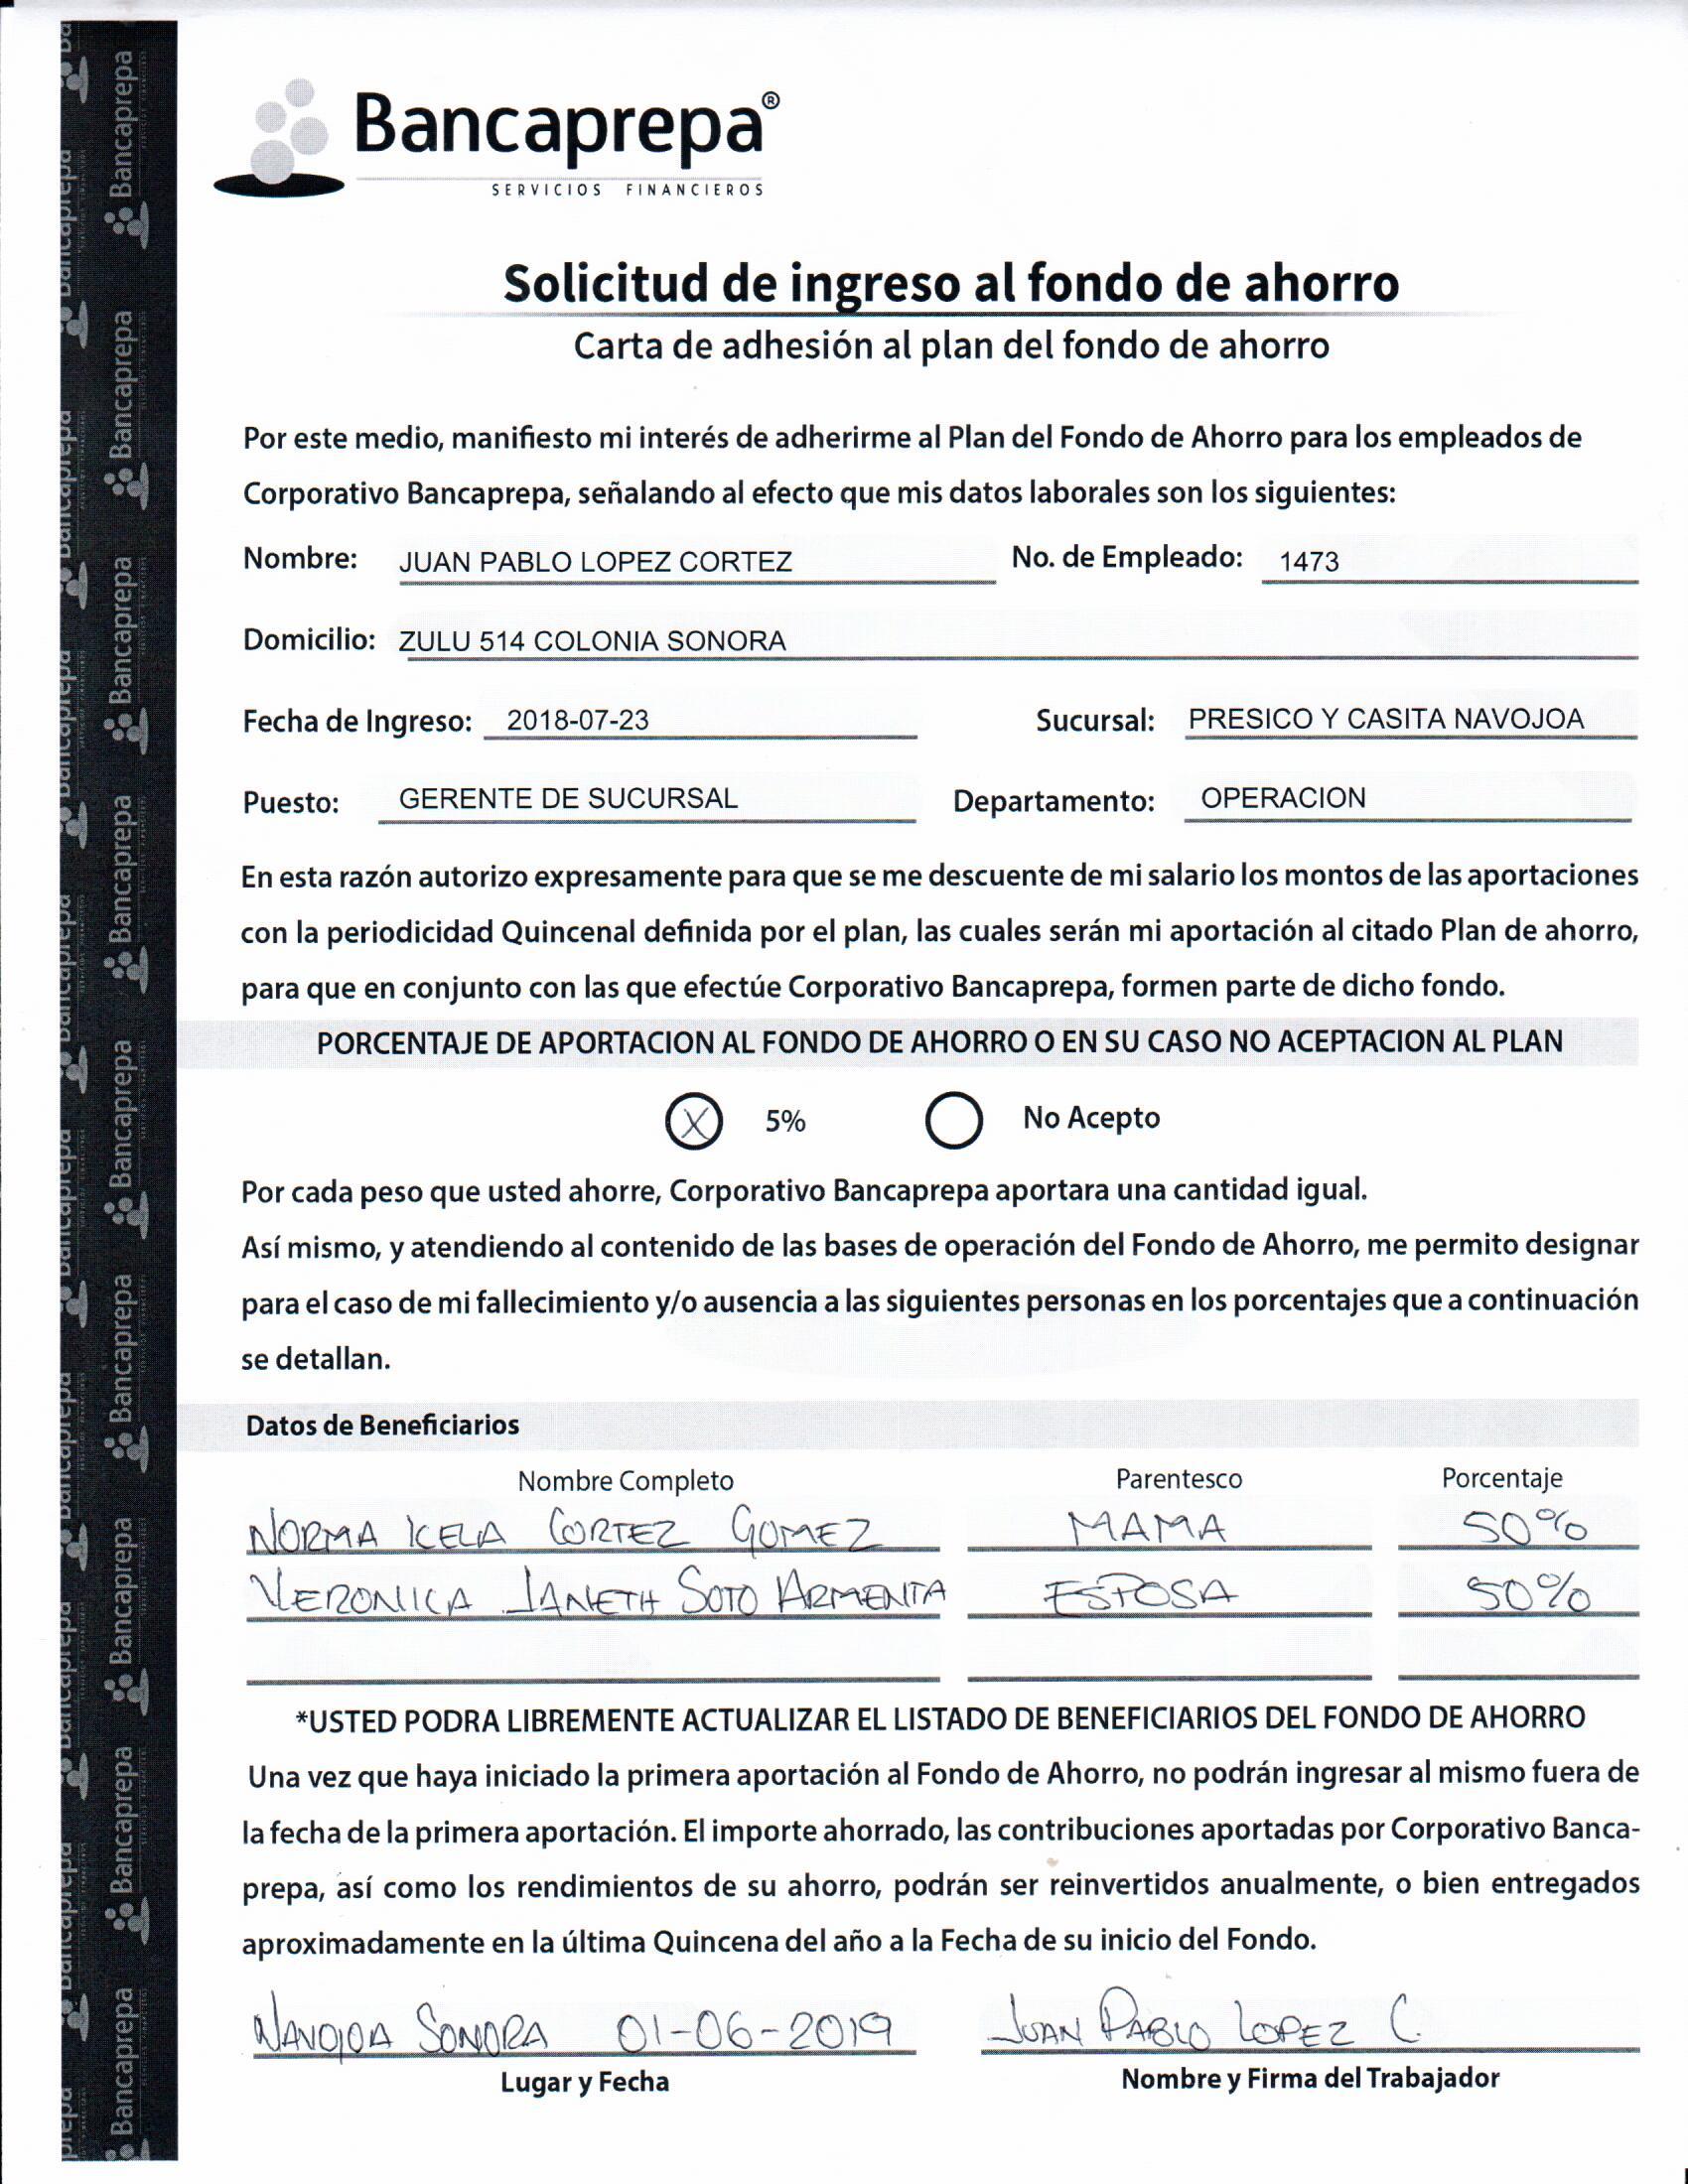 Bancaprepa®
SERVICIOS FINANCIEROS
Solicitud de ingreso al fondo de ahorro
Carta de adhesión al plan del fondo de ahorro
Por este medio, manifiesto mi interés de adherirme al Plan del Fondo de Ahorro para los empleados de
Corporativo Bancaprepa, señalando al efecto que mis datos laborales son los siguientes:
Nombre: JUAN PABLO LOPEZ CORTEZ No. de Empleado: 1473
Domicilio: ZULU 514 COLONIA SONORA
Fecha de Ingreso: 2018-07-23 Sucursal: PRESICO Y CASITA NAVOJOA
Puesto: GERENTE DE SUCURSAL Departamento: OPERACION
En esta razón autorizo expresamente para que se me descuente de mi salario los montos de las aportaciones
con la periodicidad Quincenal definida por el plan, las cuales serán mi aportación al citado Plan de ahorro,
para que en conjunto con las que efectúe Corporativo Bancaprepa, formen parte de dicho fondo.
PORCENTAJE DE APORTACION AL FONDO DE AHORRO O EN SU CASO NO ACEPTACION AL PLAN
X 5% No Acepto
Por cada peso que usted ahorre, Corporativo Bancaprepa aportara una cantidad igual.
Así mismo, y atendiendo al contenido de las bases de operación del Fondo de Ahorro, me permito designar
para el caso de mi fallecimiento y/o ausencia a las siguientes personas en los porcentajes que a continuación
se detallan.
Datos de Beneficiarios
Nombre Completo Parentesco Porcentaje
NORMA ICELA CORTEZ GOMEZ MAMA 50%
VERONICA JANETH SOTO ARMENTA ESPOSA 50%
*USTED PODRA LIBREMENTE ACTUALIZAR EL LISTADO DE BENEFICIARIOS DEL FONDO DE AHORRO
Una vez que haya iniciado la primera aportación al Fondo de Ahorro, no podrán ingresar al mismo fuera de
la fecha de la primera aportación. El importe ahorrado, las contribuciones aportadas por Corporativo Banca-
prepa, así como los rendimientos de su ahorro, podrán ser reinvertidos anualmente, o bien entregados
aproximadamente en la última Quincena del año a la Fecha de su inicio del Fondo.
NAVOJOA SONORA 01-06-2019 JUAN PABLO LOPEZ C.
Lugar y Fecha Nombre y Firma del Trabajador